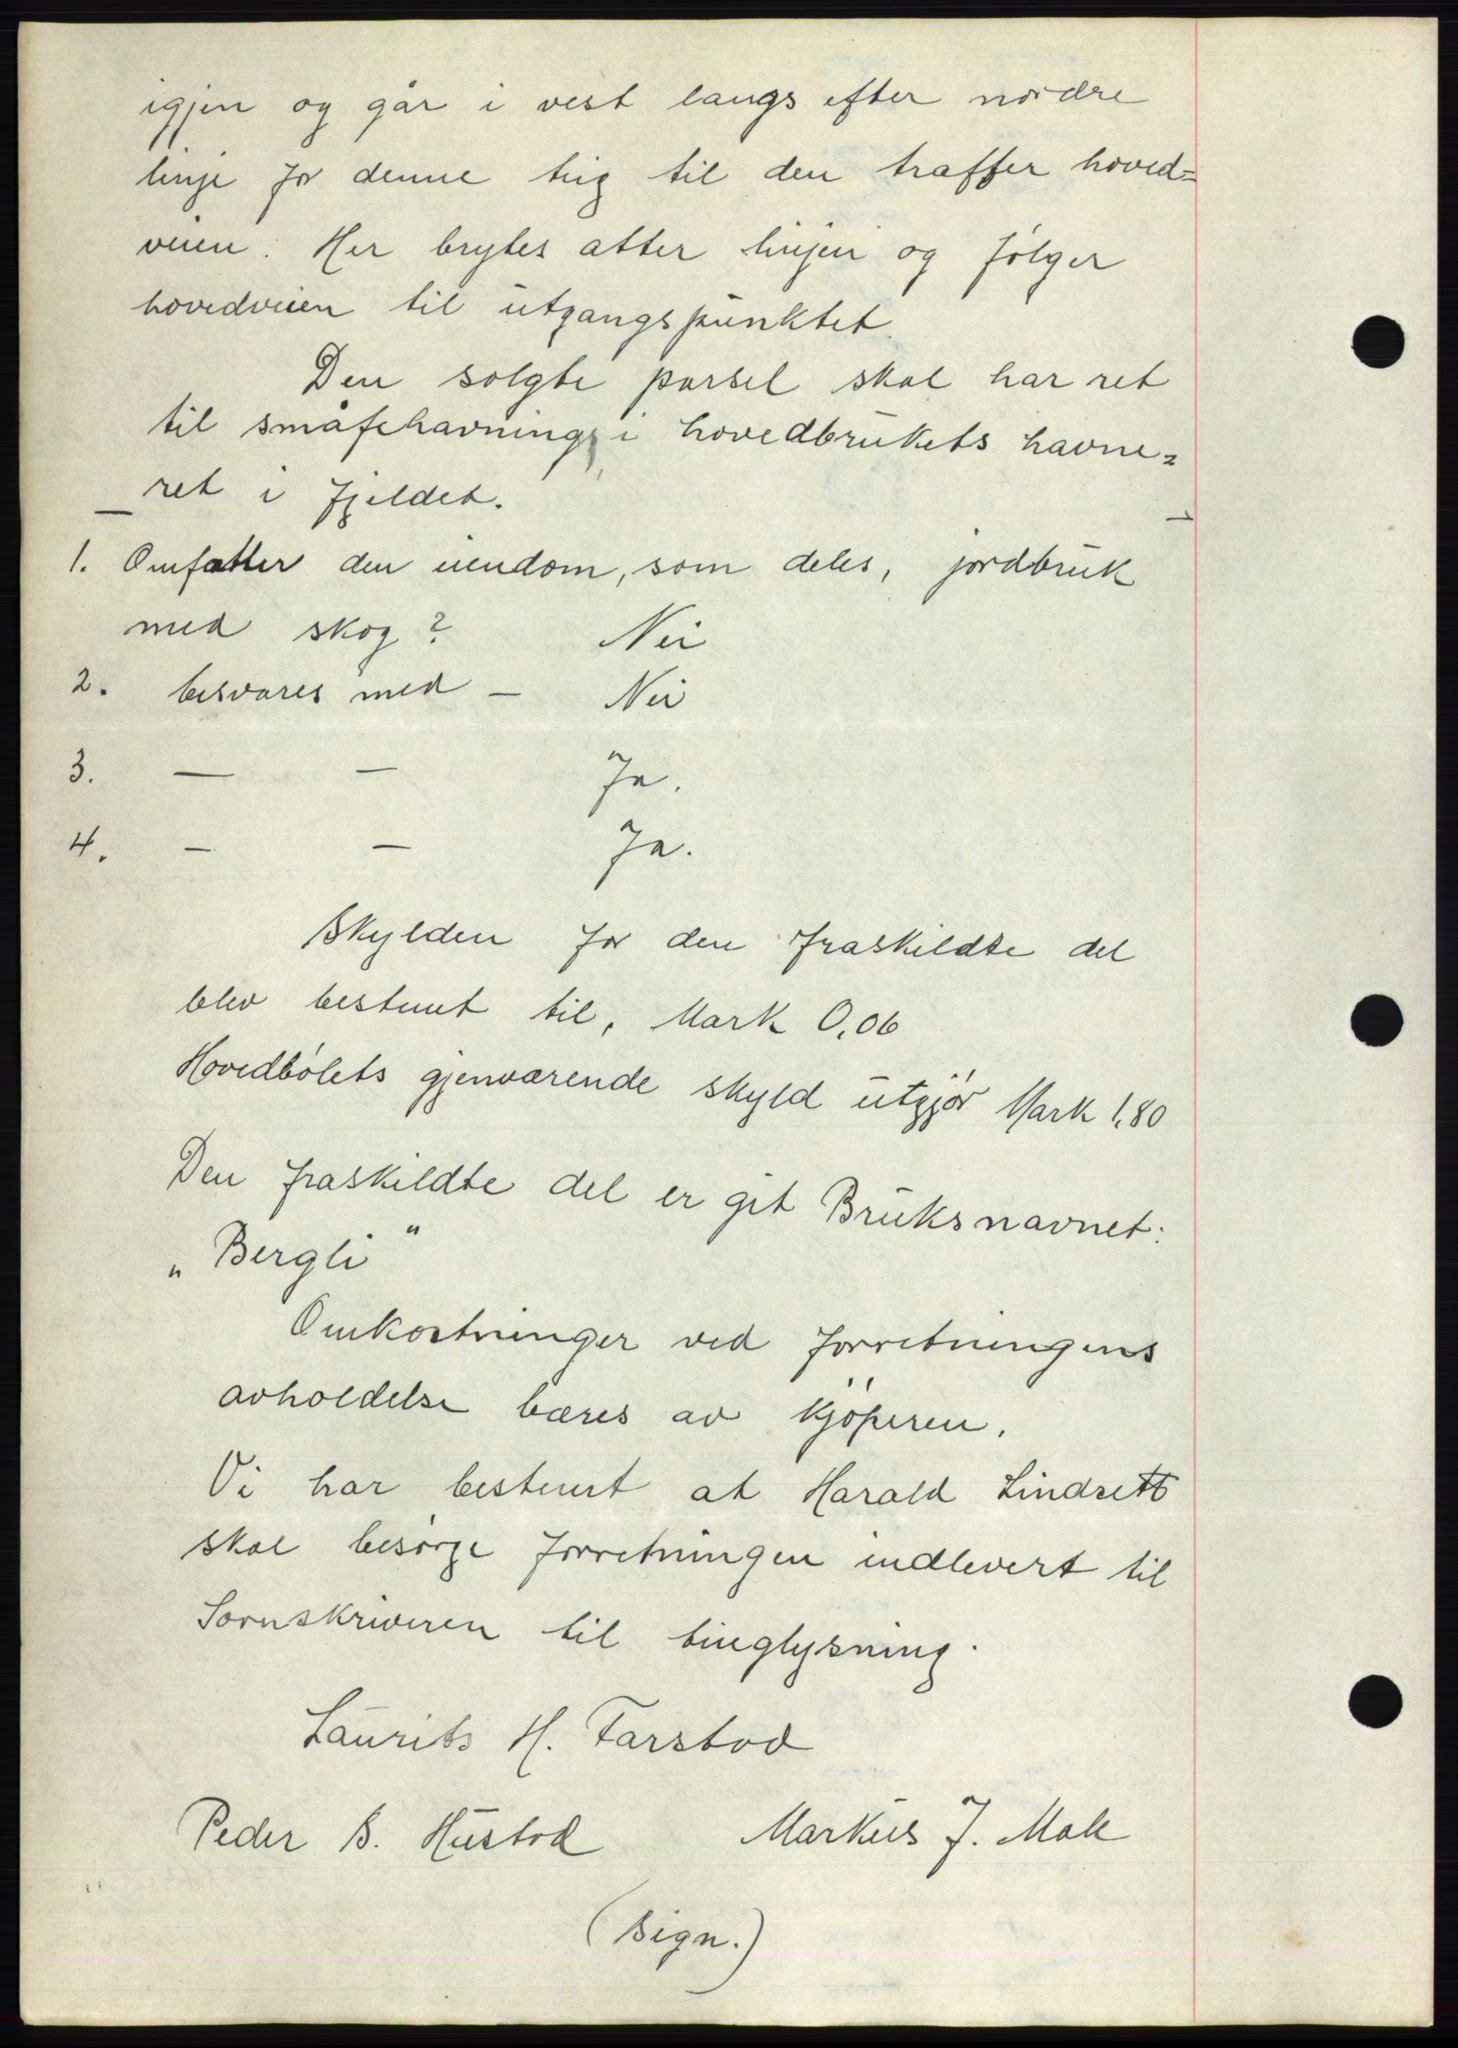 igjen og går i vest langs efter nordre
linje for denne teig til den traffer hoved=
veien. Her brytes atter linjen og følger
hovedveien til utgangspunktet.
Den solgte parsel skal har ret
til småfehavning i hovedbrukets havne=
ret i fjeldet.
1. Omfatter den eiendom, som deles, jordbruk
med skog? Nei
2. besvares med — Nei
3. — — Ja.
4. — — Ja.
Skylden for den fraskildte del
blev bestemt til, Mark 0,06
Hovedbølets gjenværende skyld utgjør Mark 1,80
Den fraskildte del er git Bruksnavnet:
„Bergli“
Omkostninger ved forretningens
avholdelse bæres av kjøperen.
Vi har bestemt at Harald Lindsett
skal besørge forretningen indlevert til
Sorenskriveren til tinglysning.
Laurits H. Farstad
Peder B. Hustad Markus J. Male
(sign.)